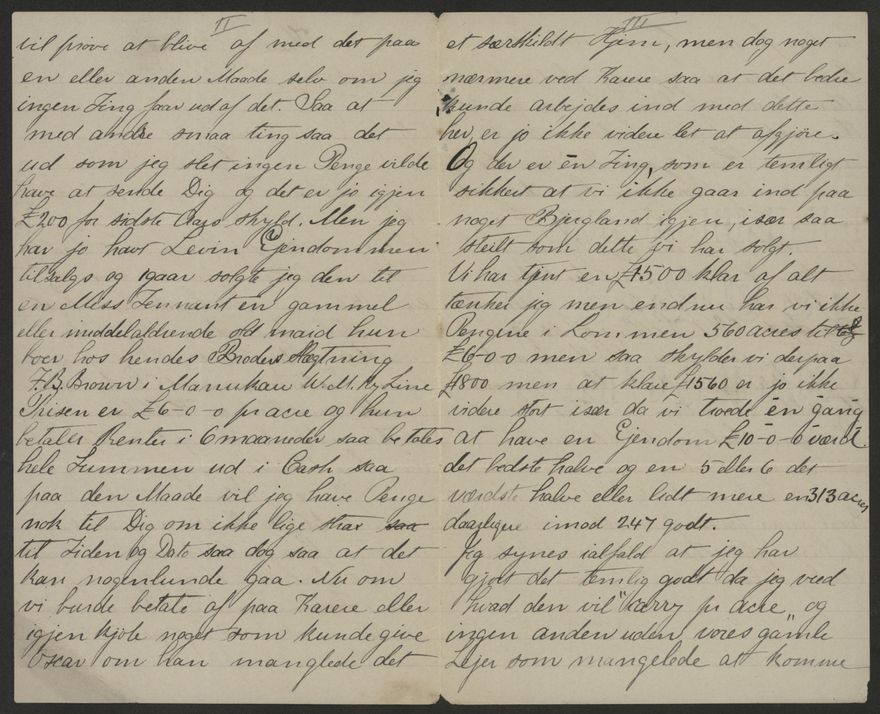 II
vil prøve at blive af med det paa
en eller anden Maade selv om jeg
ingen Ting faar ud af det. Saa at
med andre smaa ting saa det
ud som jeg slet ingen Penge vilde
have at sende Dig og det er jo igjen
£200 for sidste Aars skyld. Men jeg
har jo havt Levin Ejendommen
tilsalgs og igaar solgte jeg den til
en Miss Tennant en gammel
eller middelaldrende old maid hun
boer hos hendes Broders Slægtning
F.B. Brown i Manukau W. & M. Ry Line
Prisen er £6-0-0 pr acre og hun
betaler Renter i 6 maaneder saa betales
hele Summen ud i Cash saa
paa den Maade vil jeg have Penge
nok til Dig om ikke lige strax saa
til Tiden og Dato saa dog saa at det
kan nogenlunde gaa. Nu om
vi burde betale af paa Karere eller
igjen kjøbe noget som kunde give
Oscar om han manglede det
III
et særskildt Hjem, men dog noget
nærmere ved Karere saa at det bedre
kunde arbejdes ind med dette
her, er jo ikke videre let at afgjøre.
Og der er én Ting, som er temligt
sikkert at vi ikke gaar ind paa
noget Bjergland igjen, især saa
steilt som dette vi har solgt.
Vi har tjent en £1500 klar af alt
tænker jeg men endnu har vi ikke
Pengene i Lommen 560 acres til
£6-0-0 men saa skylder vi derpaa
£1800 men at klare £1560 er jo ikke
videre stort især da vi troede én gang
at have en Ejendom £10-0-0 værd
det bedste halve og en 5 eller 6 det
værdste halve eller lidt mere en 313 acres
daarligere imod 247 godt.
Jeg synes ialfald at jeg har
gjort det temlig godt da jeg veed
hvad den vil "carry pr acre" og
ingen anden uden vores gamle
Lejer som mangelede at komme